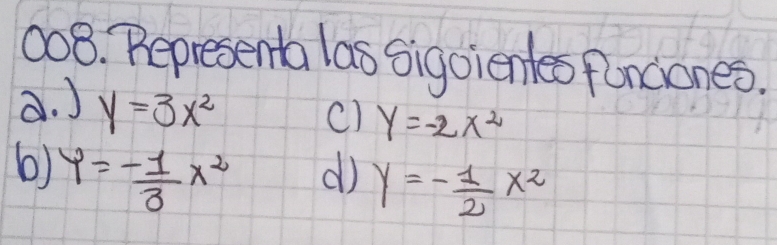 008. Representa las Siguientes funciones.
a.) y = 3x² c) y = -2x²
b) y = -1/3 x² d) y = -1/2 x²